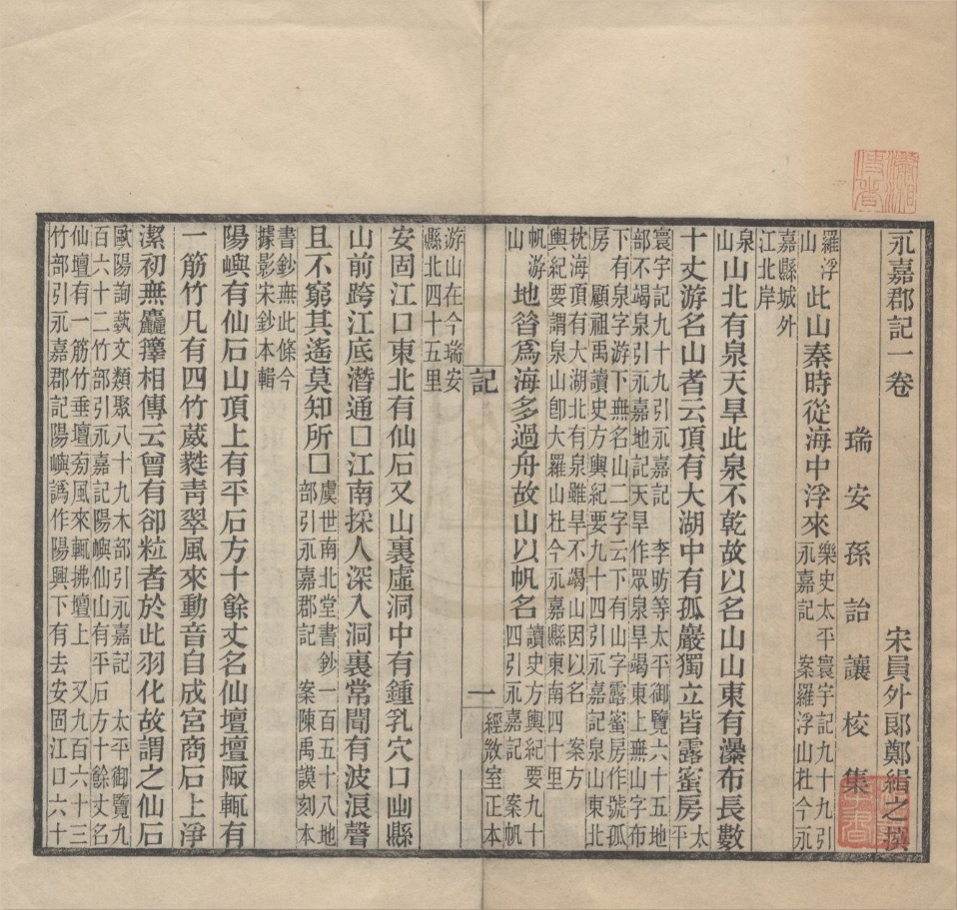 永嘉郡記一卷
宋員外郎鄭緝之撰
瑞安孫詒讓校集
羅浮山 此山秦時從海中浮來 樂史太平寰宇記九十九引永嘉記 案羅浮山在今永
嘉縣城外江北岸
泉山 山北有泉天旱此泉不乾故以名山山東有瀑布長數
十丈游名山者云頂有大湖中有孤巖獨立皆露蜜房 太平
寰宇記九十九引永嘉記 李昉等太平御覽六十五地
部不竭泉引永嘉地記天旱作眾泉旱竭東上無山字布
下有泉字游下無名山二字云下有山字露蜜房作號孤
房 顧祖禹讀史方輿紀要九十四引永嘉記泉山東北
枕海頂有大湖北有泉雖旱不竭山因以名 案方
輿紀要謂泉山卽大羅山在今永嘉縣東南四十里
帆游山 地昝爲海多過舟故山以帆名 讀史方輿紀要九十四引永嘉記 案帆
游山在今瑞安縣北四十五里
記
一
經敚室正本
安固江口東北有仙石又山裏虛洞中有鍾乳穴口凼縣
山前跨江底潛通囗江南採人深入洞裏常聞有波浪聲
且不窮其遙莫知所囗 虞世南北堂書鈔一百五十八地部引永嘉郡記 案陳禹謨刻本
書鈔無此條今據影宋鈔本輯
陽嶼有仙石山頂上有平石方十餘丈名仙壇壇陬輒有
一筋竹凡有四竹葳蕤靑翠風來動音自成宮商石上淨
潔初無麤籜相傳云曾有卻粒者於此羽化故謂之仙石
歐陽詢蓺文類聚八十九木部引永嘉記 太平御覽九
百六十二竹部引永嘉記陽嶼仙山有平石方十餘丈名
仙壇有一筋竹垂壇旁風來輒拂壇上 又九百六十三
竹部引永嘉郡記陽嶼譌作陽興下有去安固江口六十